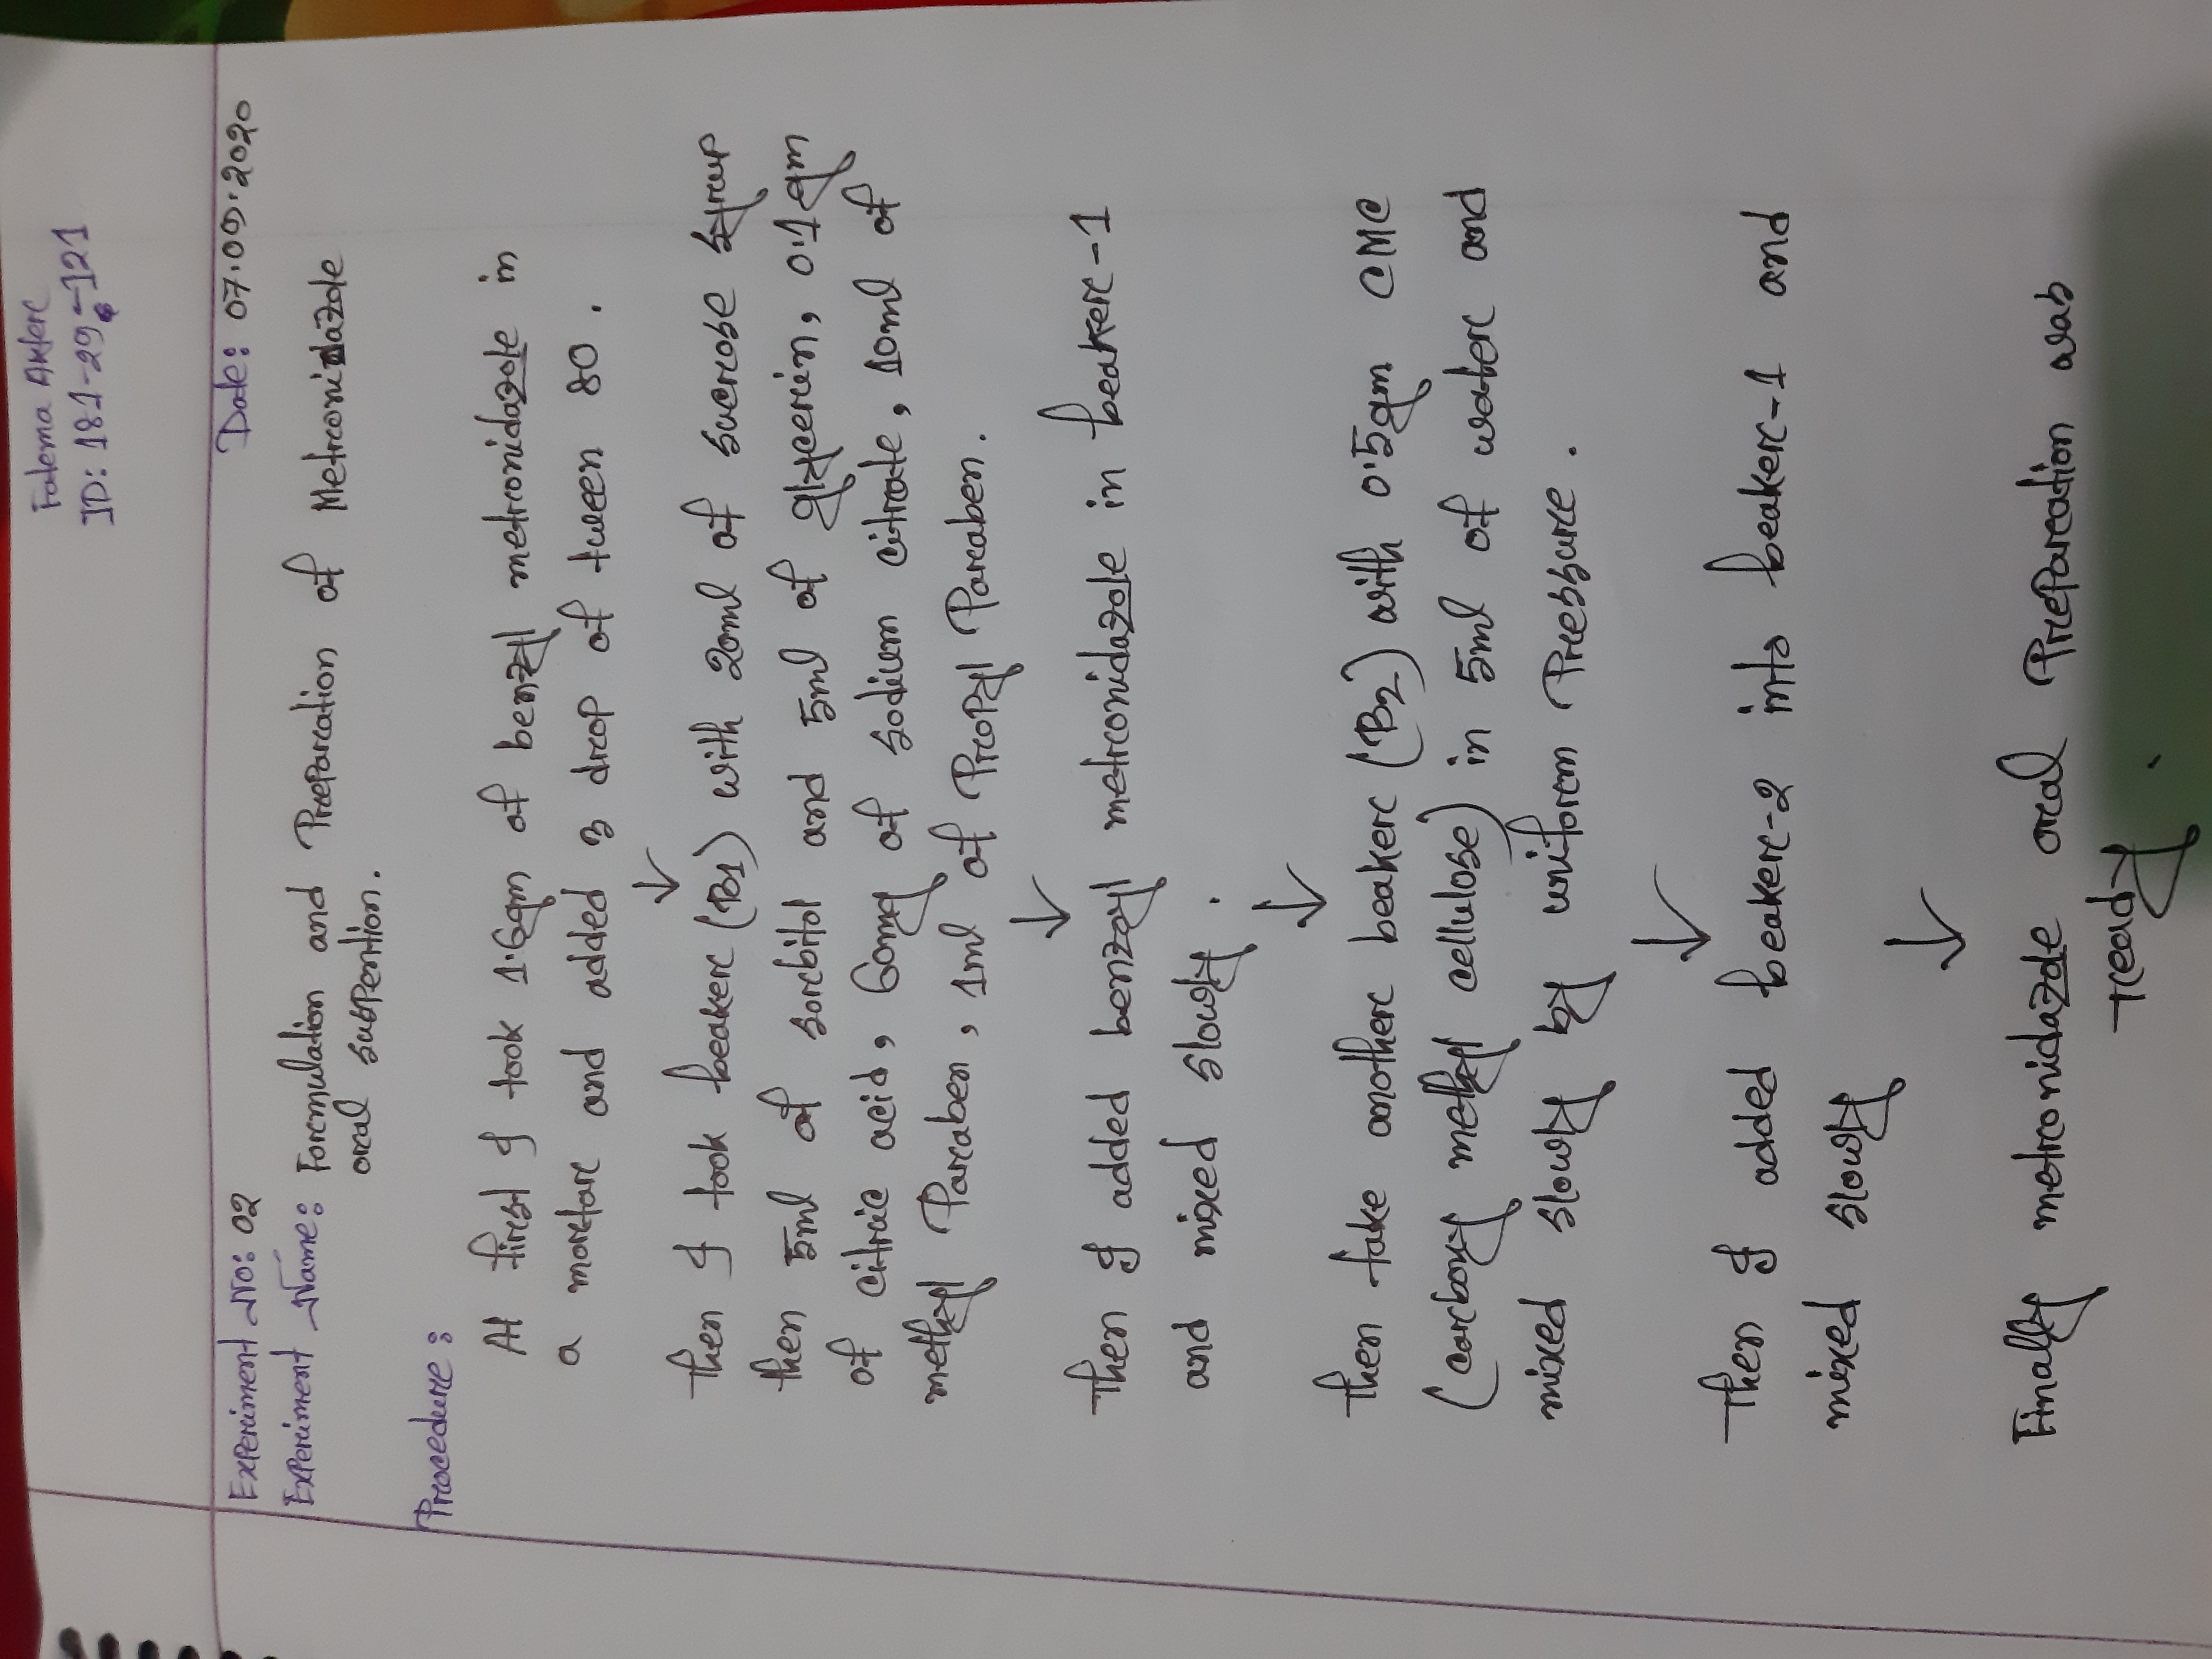 Fatema Akter
ID: 181-29-121
Experiment No: 02 Date: 07.09.2020
Experiment Name: Formulation and Preparation of Metronidazole
oral suspention.
Procedure:
At first I took 1.6gm of benzyl metronidazole in
a mortar and added 3 drop of tween 80.
↓
Then I took beaker (B1) with 20ml of sucrose syrup
then 5ml of sorbitol and 5ml of glycerin, 0.1gm
of citric acid, 60mg of sodium citrate, 10ml of
methyl Paraben, 1ml of Propyl Paraben.
↓
Then I added benzoyl metronidazole in beaker-1
and mixed slowly.
↓
Then take another beaker (B2) with 0.5gm CMC
(carboxy methyl cellulose) in 5ml of water and
mixed slowly by uniform Pressure.
↓
Then I added beaker-2 into beaker-1 and
mixed slowly
↓
Finally metronidazole oral Preparation was
ready.